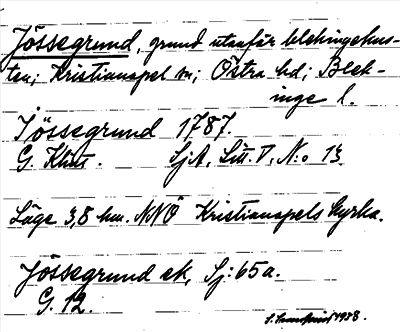 Jössegrund, grund utanför blekingekus-
ten; Kristianopel sn; Östra hd; Blek-
inge l.
Jössegrund 1787.
G. Klint. SjA, Litt. D, N:o 13
Läge 3,8 km. NNÖ Kristianopels kyrka.
Jössegrund ek, Sj: 65a.
G. 12.
1928.